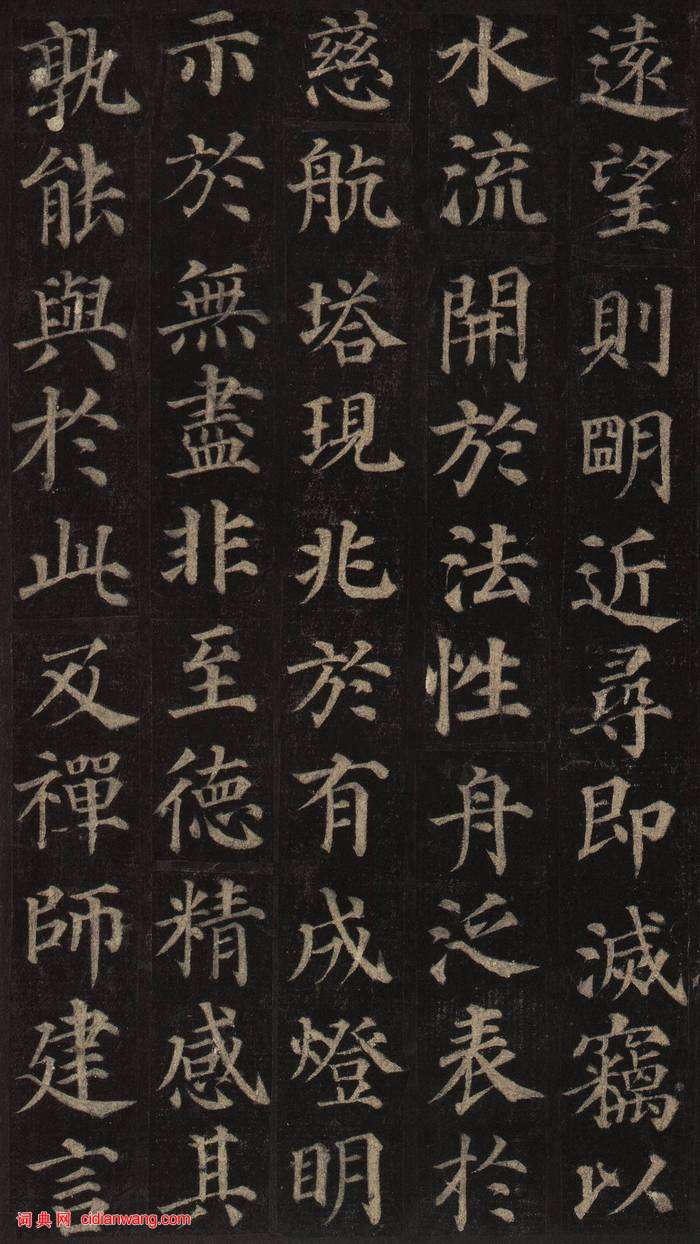 遠望則朙近尋即滅竊以
水流開於法性舟泛表於
慈航塔現兆於有成燈明
示於無盡非至德精感其
孰能與於此及禪師建言
词典网 cidianwang.com